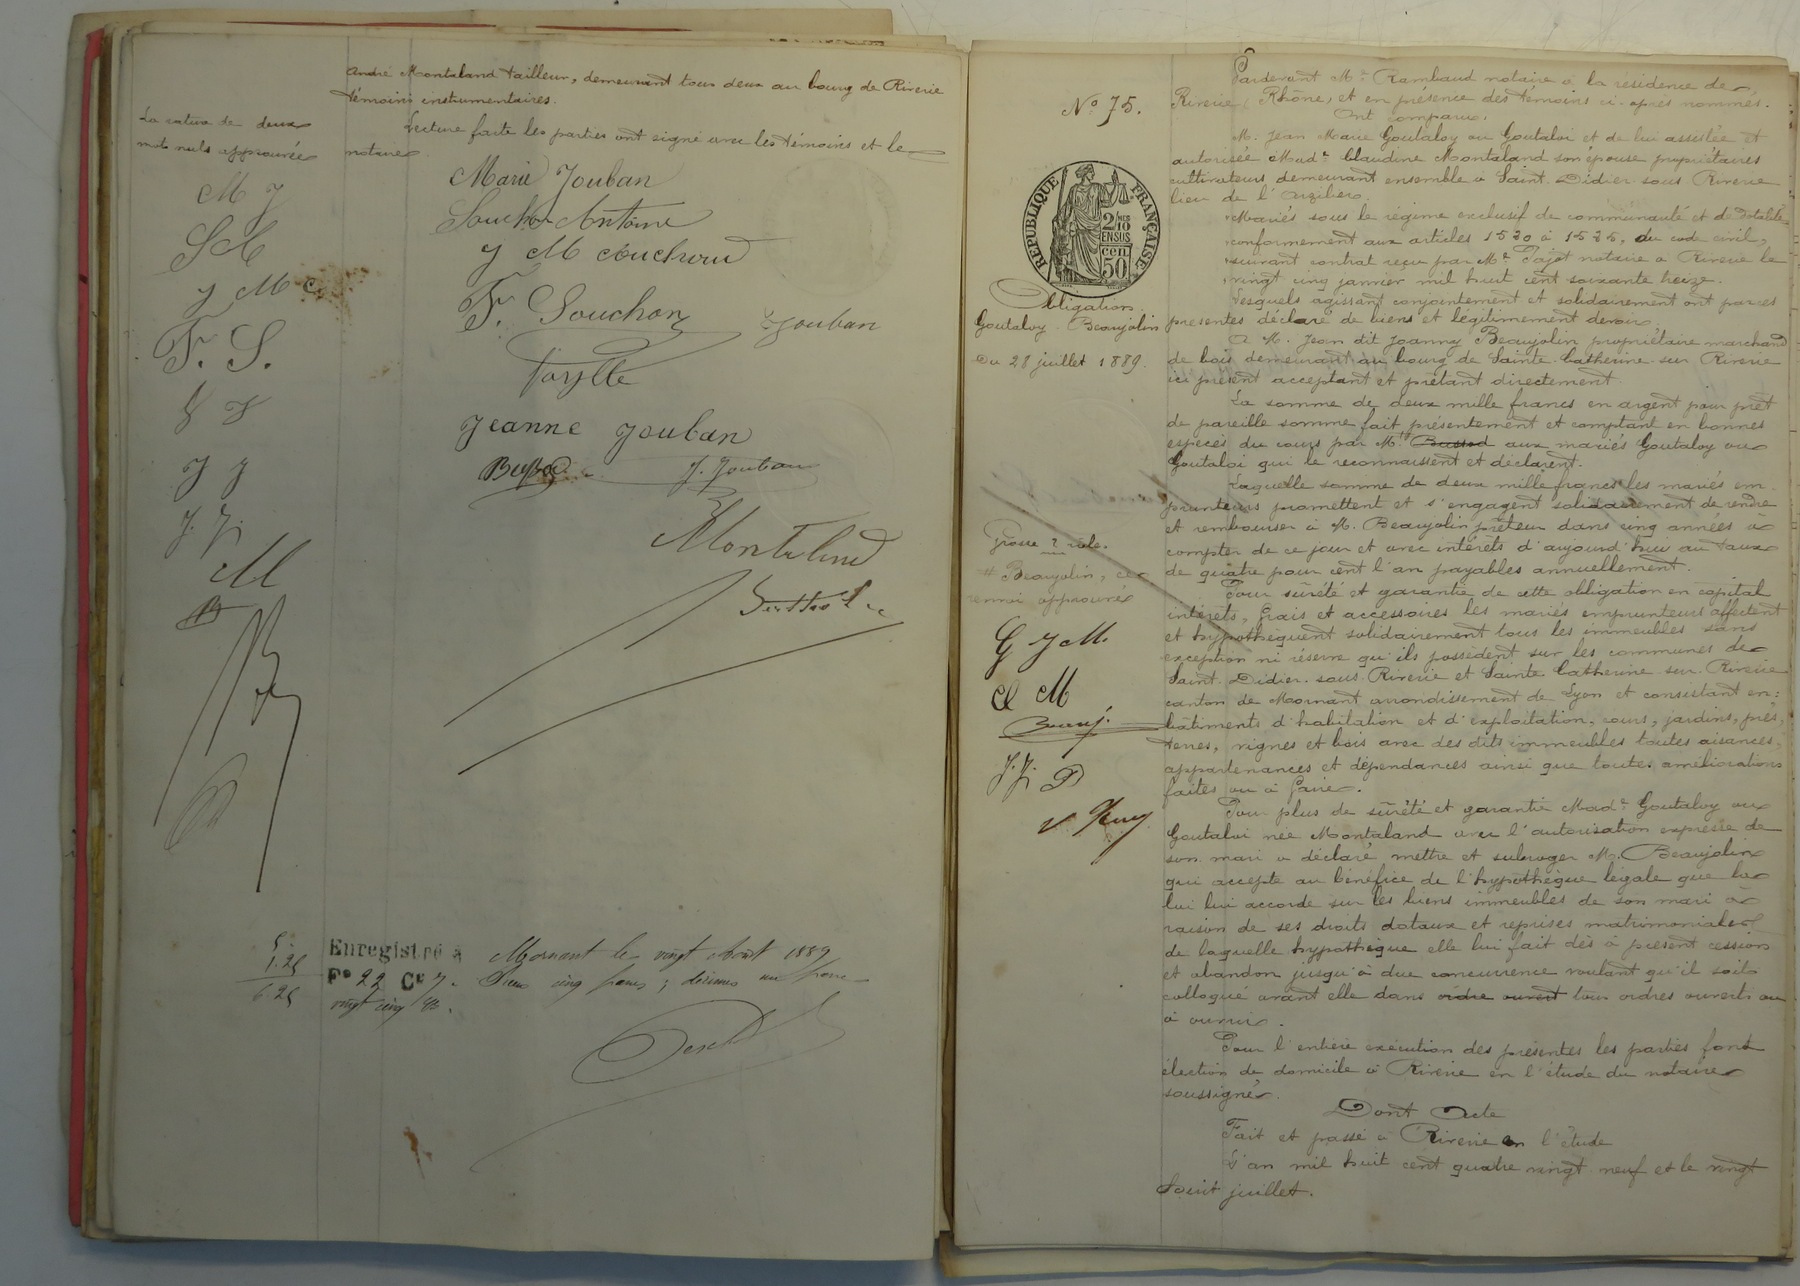 André Montaland tailleur, demeurant tous deux au bourg de Riverie
témoins instrumentaires.
Lecture faite les parties ont signé avec les témoins et le
notaire
La rature de deux
mots nuls approuvée
M J
S A
J M C
F. S.
J J
J. J.
M
B
Marie Jouban
Souchon Antoine
J M Couchoud
F. Souchon
Jouban
Fayolle
Jeanne Jouban
J. Jouban
Montaland
5.
1.25
6.25
Enregistré à Mornant le vingt Août 1889
F° 22 Ce 7. Reçu cinq francs ; décimes un franc
vingt cinq c.
N° 75.
RÉPUBLIQUE FRANÇAISE
2/10
EN SUS
50 cen
Obligation
Goutaloy - Beaujolin
Du 28 juillet 1889.
Grosse 2 rôle.
# Beaujolin, ce
renvoi approuvé
G J M.
C M
Beauj.
J. J. P
Pardevant Me Rambaud notaire à la résidence de
Riverie (Rhône) et en présence des témoins ci-après nommés.
Ont comparu,
M. Jean Marie Goutaloy ou Goutaloi et de lui assistée et
autorisée Made Claudine Montaland son épouse propriétaires
cultivateurs demeurant ensemble à Saint-Didier-sous-Riverie
lieu de l'Arzilier
Mariés sous le régime exclusif de communauté et de dotalité
conformément aux articles 1530 à 1535, du code civil,
suivant contrat reçu par Me Pajot notaire à Riverie le
vingt cinq janvier mil huit cent soixante treize.
Lesquels agissant conjointement et solidairement ont par ces
présentes déclaré de biens et légitimement devoir
A M. Jean dit Joanny Beaujolin propriétaire marchand
de bois demeurant au bourg de Sainte-Catherine-sur-Riverie
ici présent acceptant et prêtant directement.
La somme de deux mille francs en argent pour prêt
de pareille somme fait présentement et comptant en bonnes
espèces du cours par M. # aux mariés Goutaloy ou
Goutaloi qui le reconnaissent et déclarent.
Laquelle somme de deux mille francs les mariés em-
prunteurs promettent et s'engagent solidairement de rendre
et rembourser à M. Beaujolin prêteur dans cinq années à
compter de ce jour et avec intérêts d'aujourd'hui au taux
de quatre pour cent l'an payables annuellement.
Pour sûreté et garantie de cette obligation en capital
intérêts, frais et accessoires les mariés emprunteurs affectent
et hypothèquent solidairement tous les immeubles sans
exception ni réserve qu'ils possèdent sur les communes de
Saint-Didier-sous-Riverie et Sainte Catherine-sur-Riverie
canton de Mornant arrondissement de Lyon et consistant en :
bâtiments d'habitation et d'exploitation, cours, jardins, prés,
terres, vignes et bois avec des dits immeubles toutes aisances,
appartenances et dépendances ainsi que toutes améliorations
faites ou à faire.
Pour plus de sûreté et garantie Made Goutaloy ou
Goutaloi née Montaland avec l'autorisation expresse de
son mari a déclaré mettre et subroger M. Beaujolin
qui accepte au bénéfice de l'hypothèque légale que la
loi lui accorde sur les biens immeubles de son mari à
raison de ses droits dotaux et reprises matrimoniales
de laquelle hypothèque elle lui fait dès à présent cession
et abandon jusqu'à due concurrence voulant qu'il soit
colloqué avant elle dans ordre ouvert tous ordres ouverts ou
à ouvrir.
Pour l'entière exécution des présentes les parties font
élection de domicile à Riverie en l'étude du notaire
soussigné.
Dont Acte
Fait et passé à Riverie en l'étude
L'an mil huit cent quatre vingt neuf et le vingt
huit juillet.